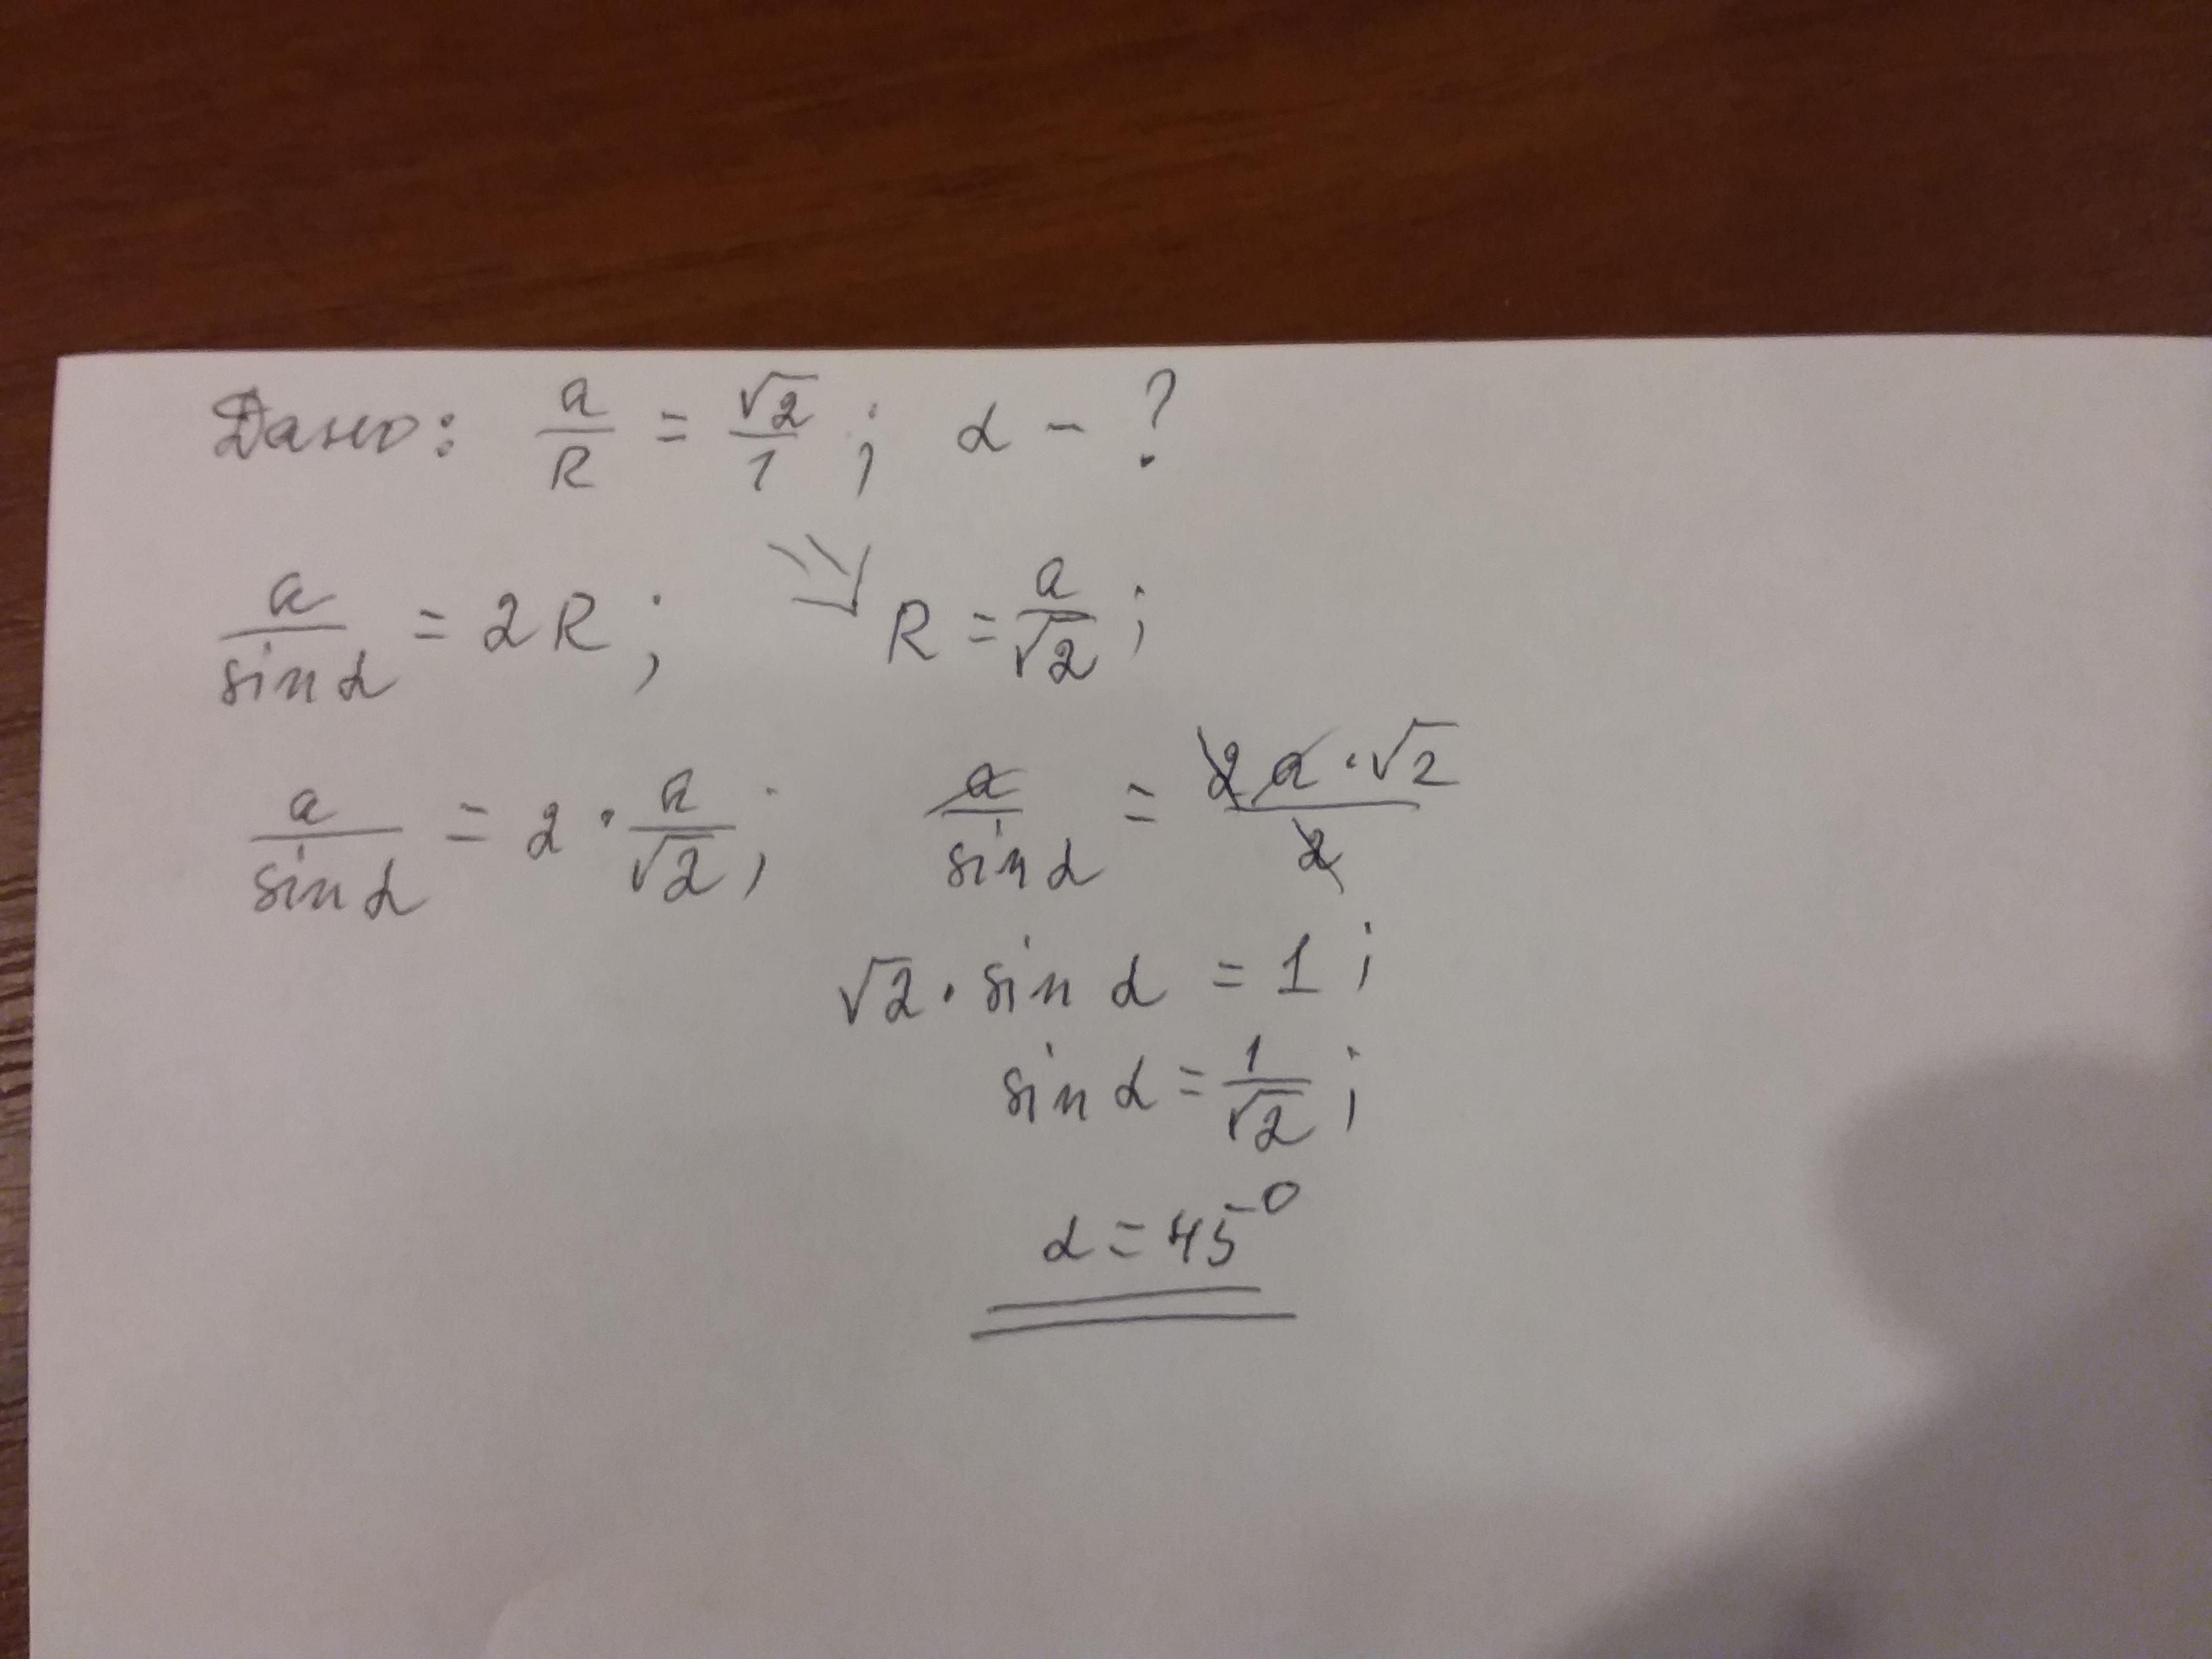 Дано: a/R = √2/1 ; α - ?
a/sin α = 2R ; ⇘ R = a/√2 ;
a/sin α = 2 · a/√2 ; a/sin α = 2a·√2/2
√2 · sin α = 1 ;
sin α = 1/√2 ;
α = 45°